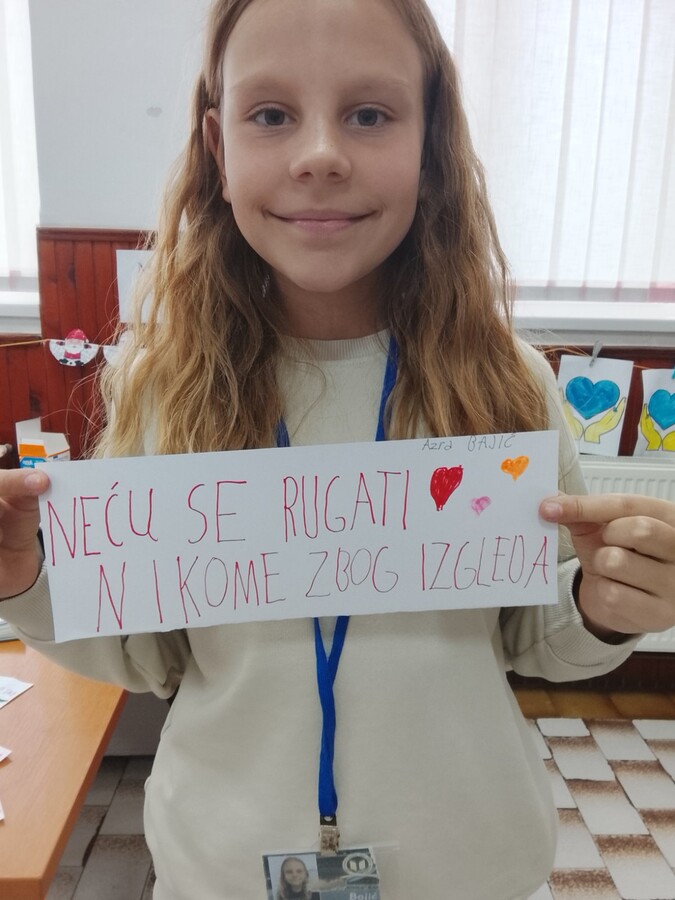 Azra BAJIĆ
NEĆU SE RUGATI
NIKOME ZBOG IZGLEDA
Bajić